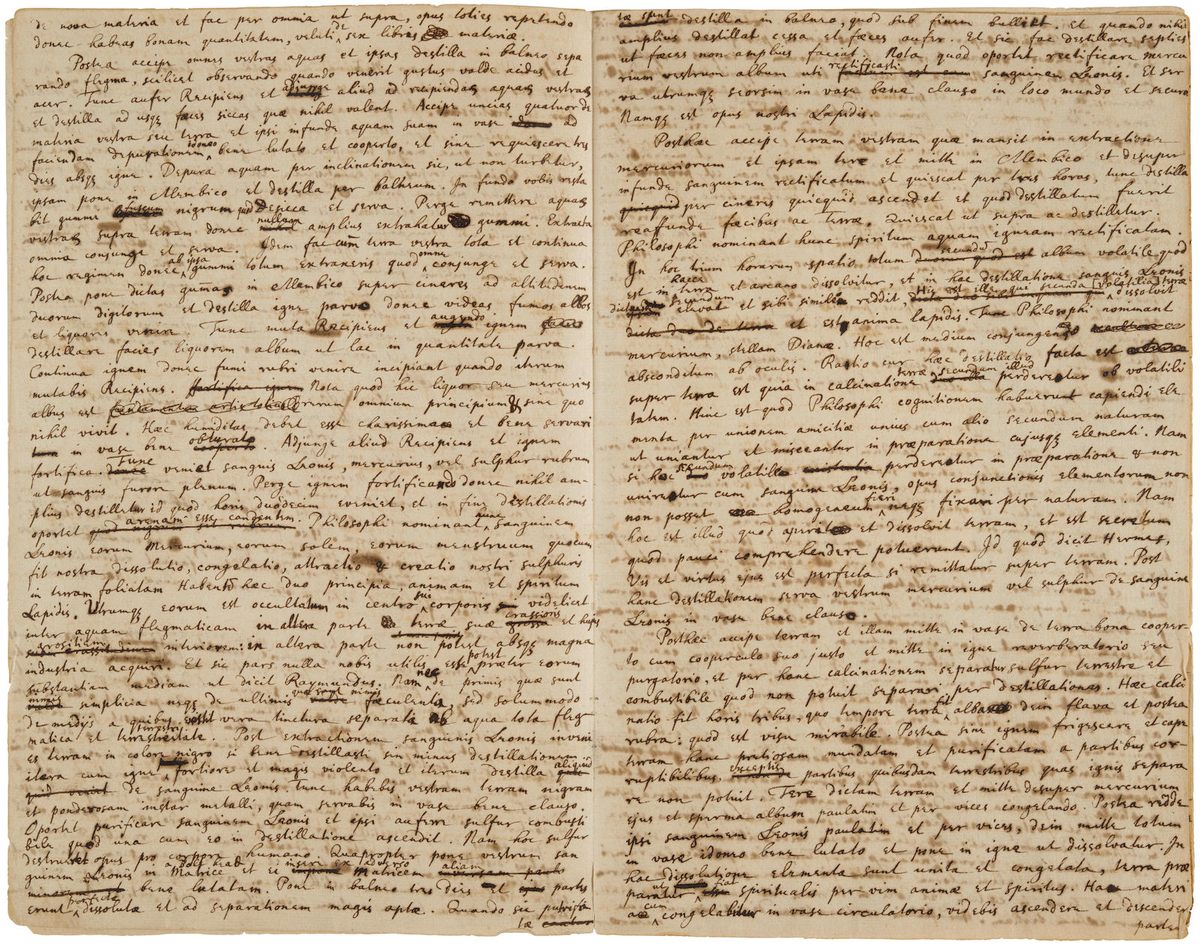 de nova materia et fac per omnia ut supra, opus toties repetendo
donec habeas bonam quantitatem, veluti de sex libris materiæ.
Postea accipe omnes vestras aquas et ipsas destilla in balneo sepa
rando flegma, scilicet observando quando venerit gustus valde acidus et
acer. Tunc aufer Recipiens et aliud ad recipiendam aquam vestram
et destilla ad usqꝫ fæces siccas quæ nihil valent. Accipe uncias quatuor de
materia vestra seu terra et ipsi infunde aquam suam in vase ad
faciendam depurationem idoneo bene lutato et cooperto, et sine requiescere tres
dies absqꝫ igne. Depura aquam per inclinationem sic, ut non turbitur,
ipsam pone in Alembico et destilla per balneum. In fundo vobis resta
bit gummi nigrum quod deseca et serva. Perge remittere aquam
vestram supra terram donec nullum amplius extrahatur gummi. Extracta
omnia conjunge et serva. Idem fac cum terra vestra tota et continua
hoc regimen donec ab ipsa gummi totum extraxeris quod omne conjunge et serva.
Postea pone dictas gumas in Alembico super cineres ad altitudinem
duorum digitorum et destilla igne parvo donec videas fumos albos
et liquores venire. Tunc muta Recipiens et augendo ignem
destillare facies liquorem album ut lac in quantitate parva.
Continua ignem donec fumi rubri venire incipiant quando iterum
mutabis Recipiens. Nota quod hic liquor seu mercurius
albus est rerum omnium principium & sine quo
nihil vivit. Hæc humiditas debet esse clarissima et bene servari
in vase bene obturato. Adjunge aliud Recipiens et ignem
fortifica. Tunc veniet sanguis Leonis, mercurius, vel sulphur rubrum
ut sanguis furore plenum. Perge ignem fortificando donec nihil am-
plius destillatur id quod horis duodecim eveniet, et in fine destillationis
oportet arenam esse candentem. Philosophi nominant hunc sanguinem
Leonis eorum Mercurium, eorum solem, eorum menstruum quocum
fit nostra dissolutio, congelatio, attractio & creatio nostri sulphuris
in terram foliatam. Habent hæc duo principia animam et spiritum
Lapidis. Utrumqꝫ eorum est occultatum in centro sui corporis videlicet
inter aquam flegmaticam in altera parte terræ suæ crassioris et hujus
interiorem in altera parte non potest absqꝫ magna
industria acquiri. Et sic pars nulla nobis utilis esse potest præter eorum
substantiam mediam ut dicit Raymundus. Nam nec de primis quæ sunt
nimis simplicia neqꝫ de ultimis quæ sunt nimis fæculenta, sed solummodo
de medijs a quibus vera tinctura separata ab aqua tota fleg
matica et terrestreitate. Post extractionem sanguinis Leonis inveni
es terram in colore nigro si bene destillasti sin minus destillationem
itera cum igne fortiore et magis violento et iterum destilla aliquid
de sanguine Leonis. tunc habebis vestram terram nigram
et ponderosam instar metalli, quam servabis in vase bene clauso.
Oportet purificare sanguinem Leonis et ipsi aufferre sulfur combusti
bile quod una cum eo in destillatione ascendit. Nam hoc sulfur
destrueret opus pro corpore humano. Quapropter pone vestrum san
guinem Leonis in Matrice et ei Matricem aliam
bene lutatam. Pone in balneo tres dies et partes
erunt perfecte dissolutæ et ad separationem magis aptæ. Quando sic putrefa
tæ
tæ sunt destilla in balneo, quod sub finem bulliat. Et quando nihil
amplius destillat cessa et fæces aufer. Et sic fac destillare septies
ut fæces non amplius faciat. Nota quod oportet rectificare mercu
rium vestrum album uti rectificasti sanguinem Leonis. Et ser
va utrumqꝫ seorsim in vase bene clauso in loco mundo et securo
Namqꝫ est opus nostri Lapidis.
Posthæc accipe terram vestram quæ mansit in extractione
mercuriorum et ipsam tere et mitte in Alembico et desuper
infunde sanguinem rectificatum et quiescat per tres horas, tunc destilla
per cineres quicquid ascendet et quod destillatum fuerit
reaffunde fæcibus ac terræ. Quiescat ut supra ac destilletur.
Philosophi nominant hunc spiritum aquam igneam rectificatam.
In hoc trium horarum spatio totum secundum album volatile quod
est in hacce terra et arcano dissolvitur, et in hac destillatione sanguis Leonis
dictum secundum elevat et sibi simile reddit, volatilia terræ dissolvit
et est anima lapidis. Tunc Philosophi nominant
mercurium, stellam Dianæ. Hoc est medium conjungendi
absconditum ab oculis. Ratio cur hæc destillatio facta est
super terra est quia in calcinatione terræ secundum illud perderetur ob volatili
tatem. Hinc est quod Philosophi cognitionem habuerunt capiendi ele
menta per unionem amicitiæ unius cum alio secundum naturam
ut uniantur et misceantur in præparatione cujusqꝫ elementi. Nam
si hoc secundum volatile perderetur in præparatione & non
uniretur cum sanguine Leonis, opus conjunctionis elementorum non
non posset homogeneum fieri neqꝫ fixari per naturam. Nam
hoc est illud quod aperit et dissolvit terram, et est secretum
quod pauci comprehendere potuerunt. Id quod dicit Hermes,
Vis et virtus ejus est perfecta si remittatur super terram. Post
hanc destillationem serva vestrum mercurium vel sulphur de sanguine
Leonis in vase bene clauso.
Posthæc accipe terram et illam mitte in vase de terra bona cooper
to cum cooperculo suo justo et mitte in igne reverberatorio seu
purgatorio, et per hanc calcinationem separatur sulfur terrestre et
combustibile quod non potuit separari per destillationes. Hæc calci
natio fit horis tribus, quo tempore terra fit alba dein flava et postea
rubra; quod est visu mirabile. Postea sine ignem frigescere et cape
terram hanc pretiosam mundatam et purificatam a partibus cor-
ruptibilibus. exceptis partibus quibusdam terrestribus quas ignis separa
re non potuit. Tere dictam terram et mitte desuper mercurium
ejus et sperma album paulatim et per vices congelando. Postea redde
ipsi sanguinem Leonis paulatim et per vices, dein mitte totum
in vase idoneo bene lutato et pone in igne ut dissolvatur. In
hac dissolutione elementa sunt unita et congelata, terra præ
paratur ut fiat spiritualis per vim animæ et spiritus. Hæc materi
æ cum congelabitur in vase circulatorio, videbis ascendere et descendere
partes